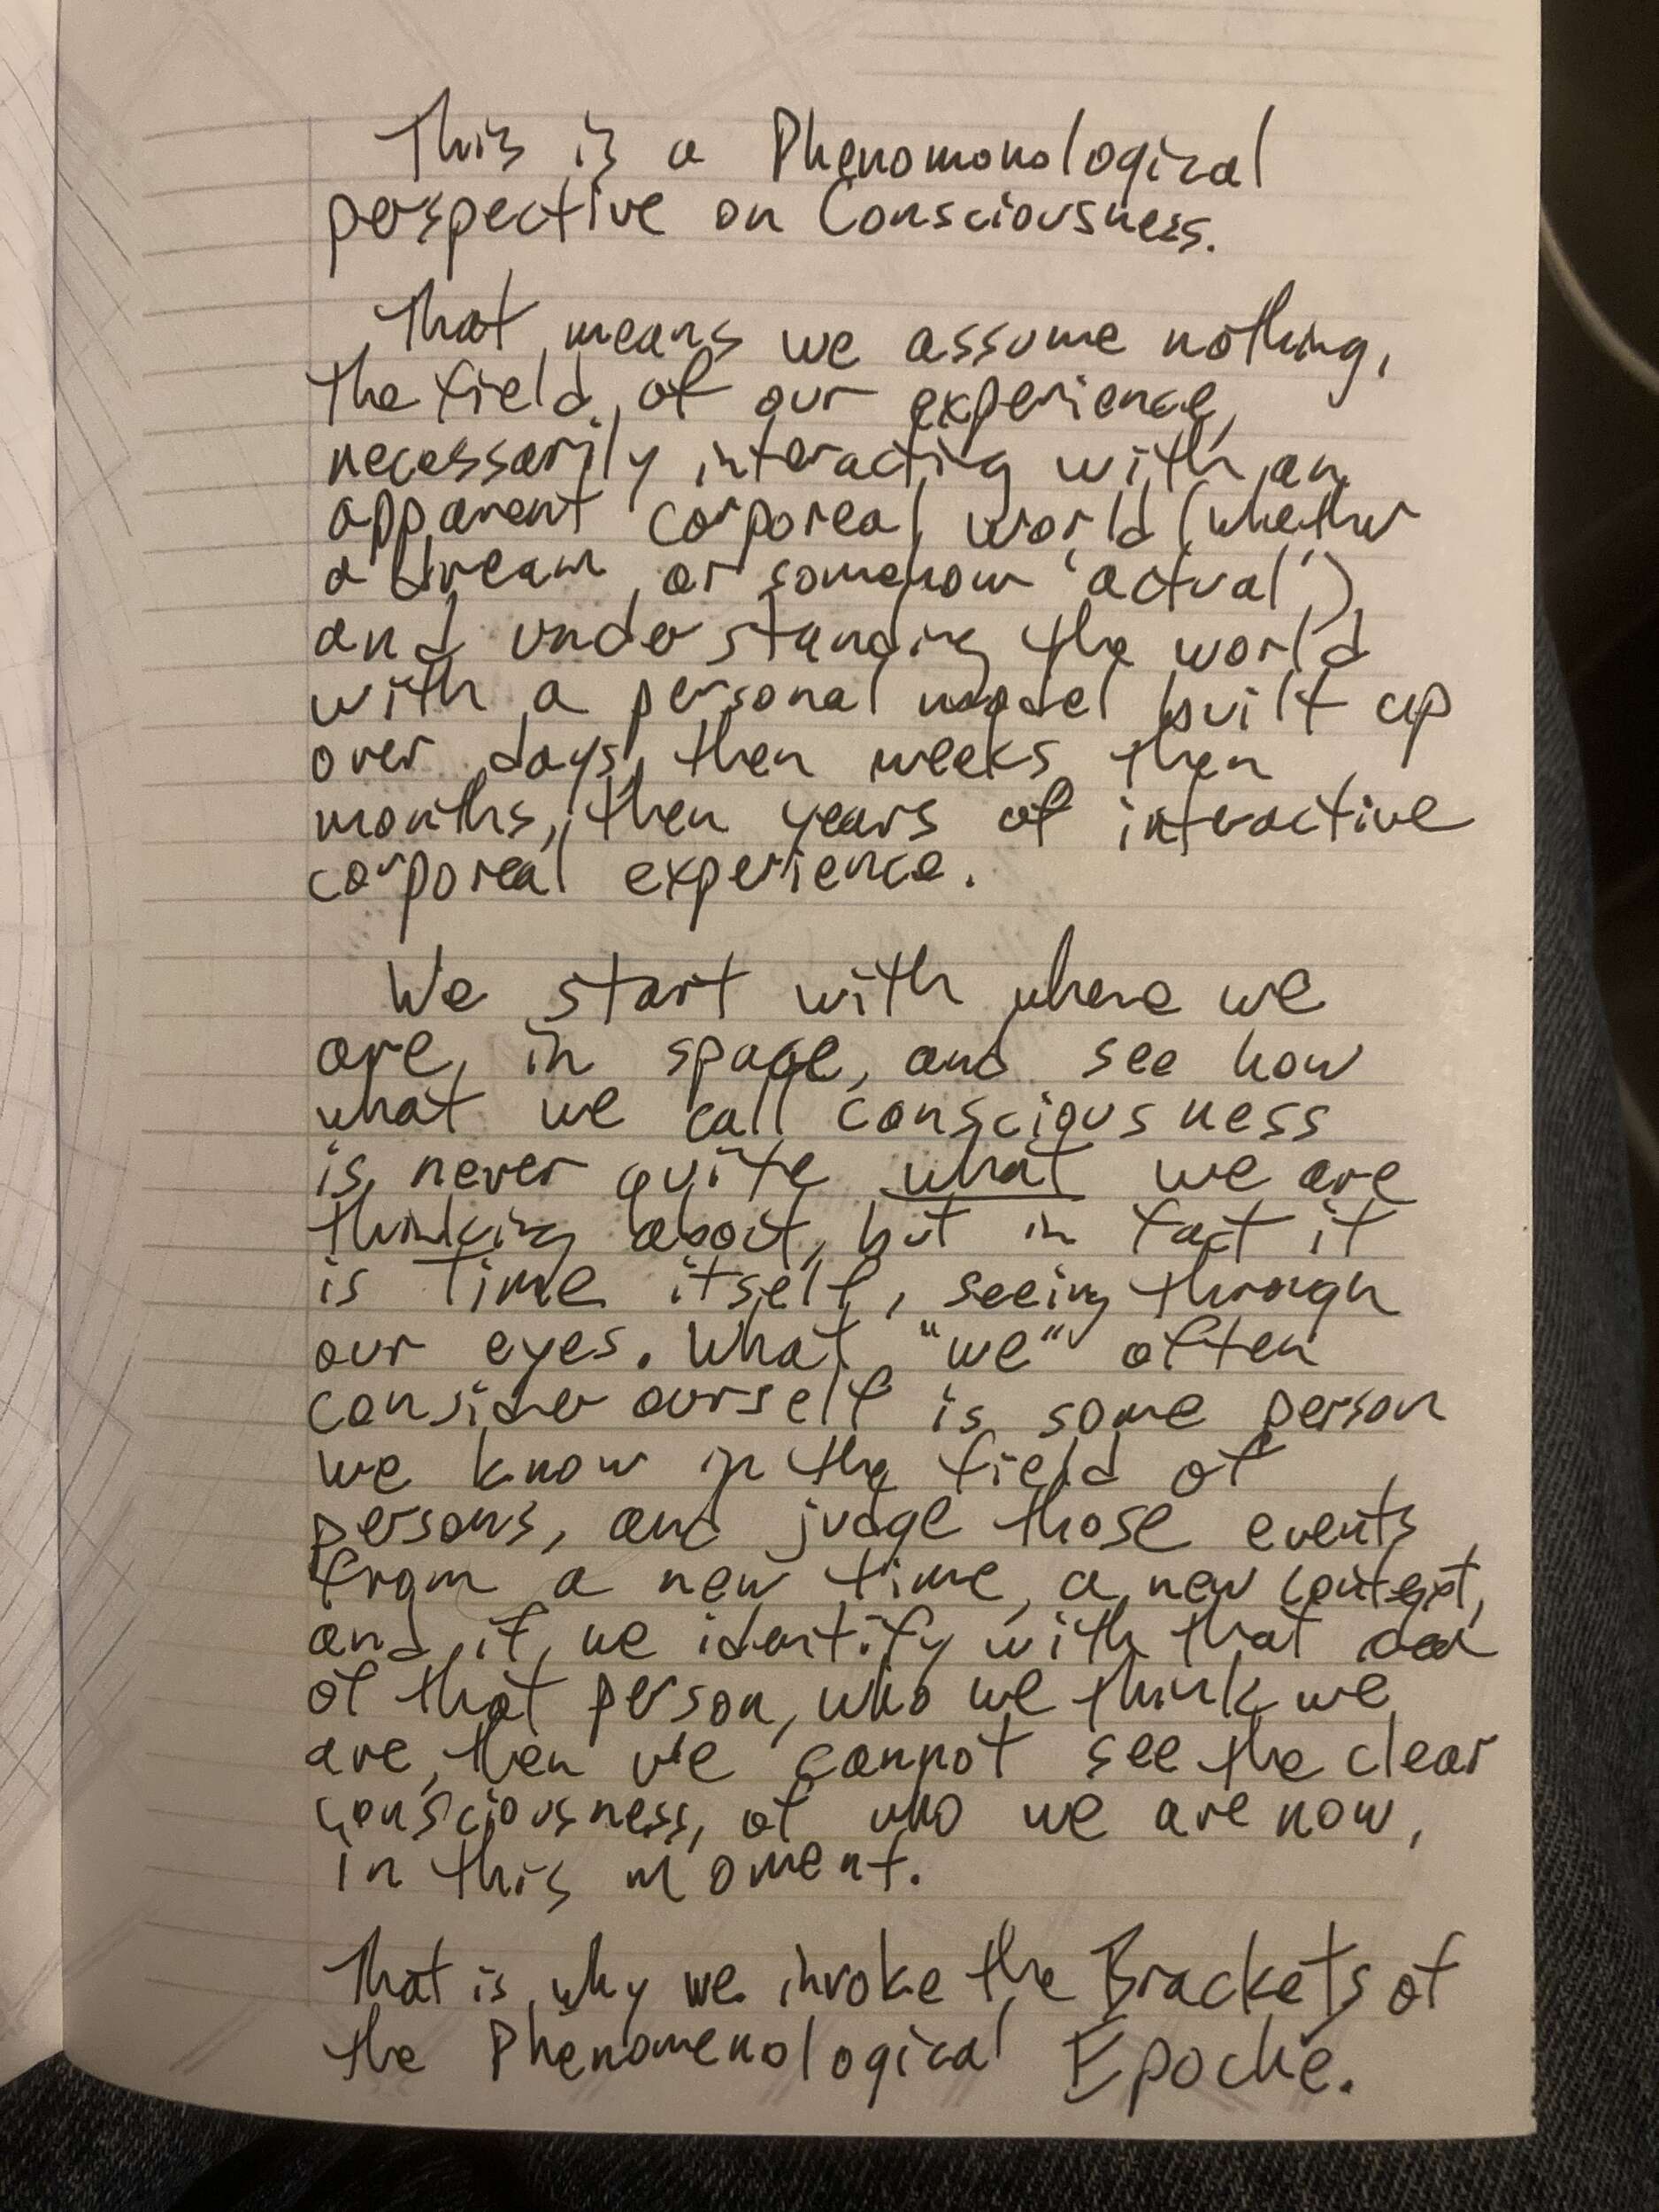 This is a Phenomonological
perspective on Consciousness.
That means we assume nothing,
the field of our experience,
necessarily interacting with an
apparent corporeal world (whether
a dream, or somehow 'actual'),
and understanding the world
with a personal model built up
over days, then weeks, then
months, then years of interactive
corporeal experience.
We start with where we
are, in space, and see how
what we call consciousness
is never quite what we are
thinking about, but in fact it
is Time itself, seeing through
our eyes. What "we" often
consider ourself is some person
we know in the field of
persons, and judge those events
from a new time, a new context,
and if we identify with that
of that person, who we think we
are, then we cannot see the clear
consciousness, of who we are now,
in this moment.
That is why we invoke the Brackets of
the Phenomenological Epoche.